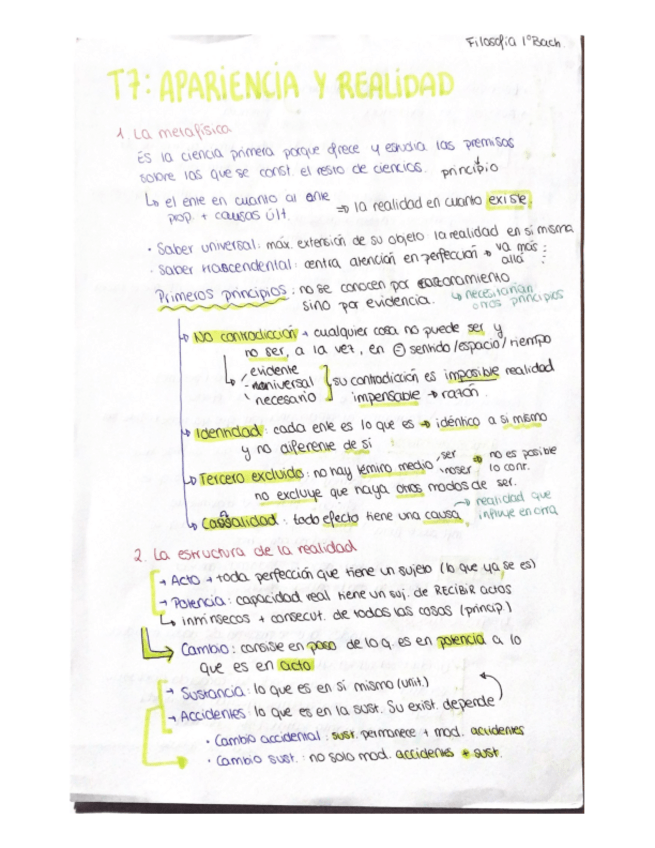 Filosofía 1º Bach.
T7: APARIENCIA Y REALIDAD
1. La metafísica
Es la ciencia primera porque ofrece y estudia las premisas
sobre las que se const. el resto de ciencias. principio
↳ el ente en cuanto al ente ⇒ la realidad en cuanto existe
prop. + causas últ.
· Saber universal: máx. extensión de su objeto la realidad en si misma
· Saber trascendental: centra atención en perfección → va más allá
Primeros principios: no se conocen por razonamiento ↳ necesitarían
sino por evidencia. otros principios
↳ No contradicción → cualquier cosa no puede ser y
no ser, a la vez, en = sentido/espacio/tiempo
- evidente
- universal } su contradicción es imposible realidad
- necesario impensable → razón.
↳ Identidad: cada ente es lo que es → idéntico a si mismo
y no diferente de sí
↳ Tercero excluido: no hay término medio ser no ser → no es posible lo contr.
no excluye que haya otros modos de ser.
↳ Causalidad: todo efecto tiene una causa → realidad que influye en otra
2. La estructura de la realidad
→ Acto → toda perfección que tiene un sujeto (lo que ya se es)
→ Potencia: capacidad real tiene un suj. de RECIBIR actos
↳ intrínsecos + consecut. de todas las cosas (princip.)
↳ Cambio: consiste en paso de lo q. es en potencia a lo
que es en acto
→ Sustancia: lo que es en si mismo (unit.)
→ Accidentes: lo que es en la sust. Su exist. depende
· Cambio accidental: sust. permanece + mod. accidentes
· Cambio sust.: no solo mod. accidentes + sust.